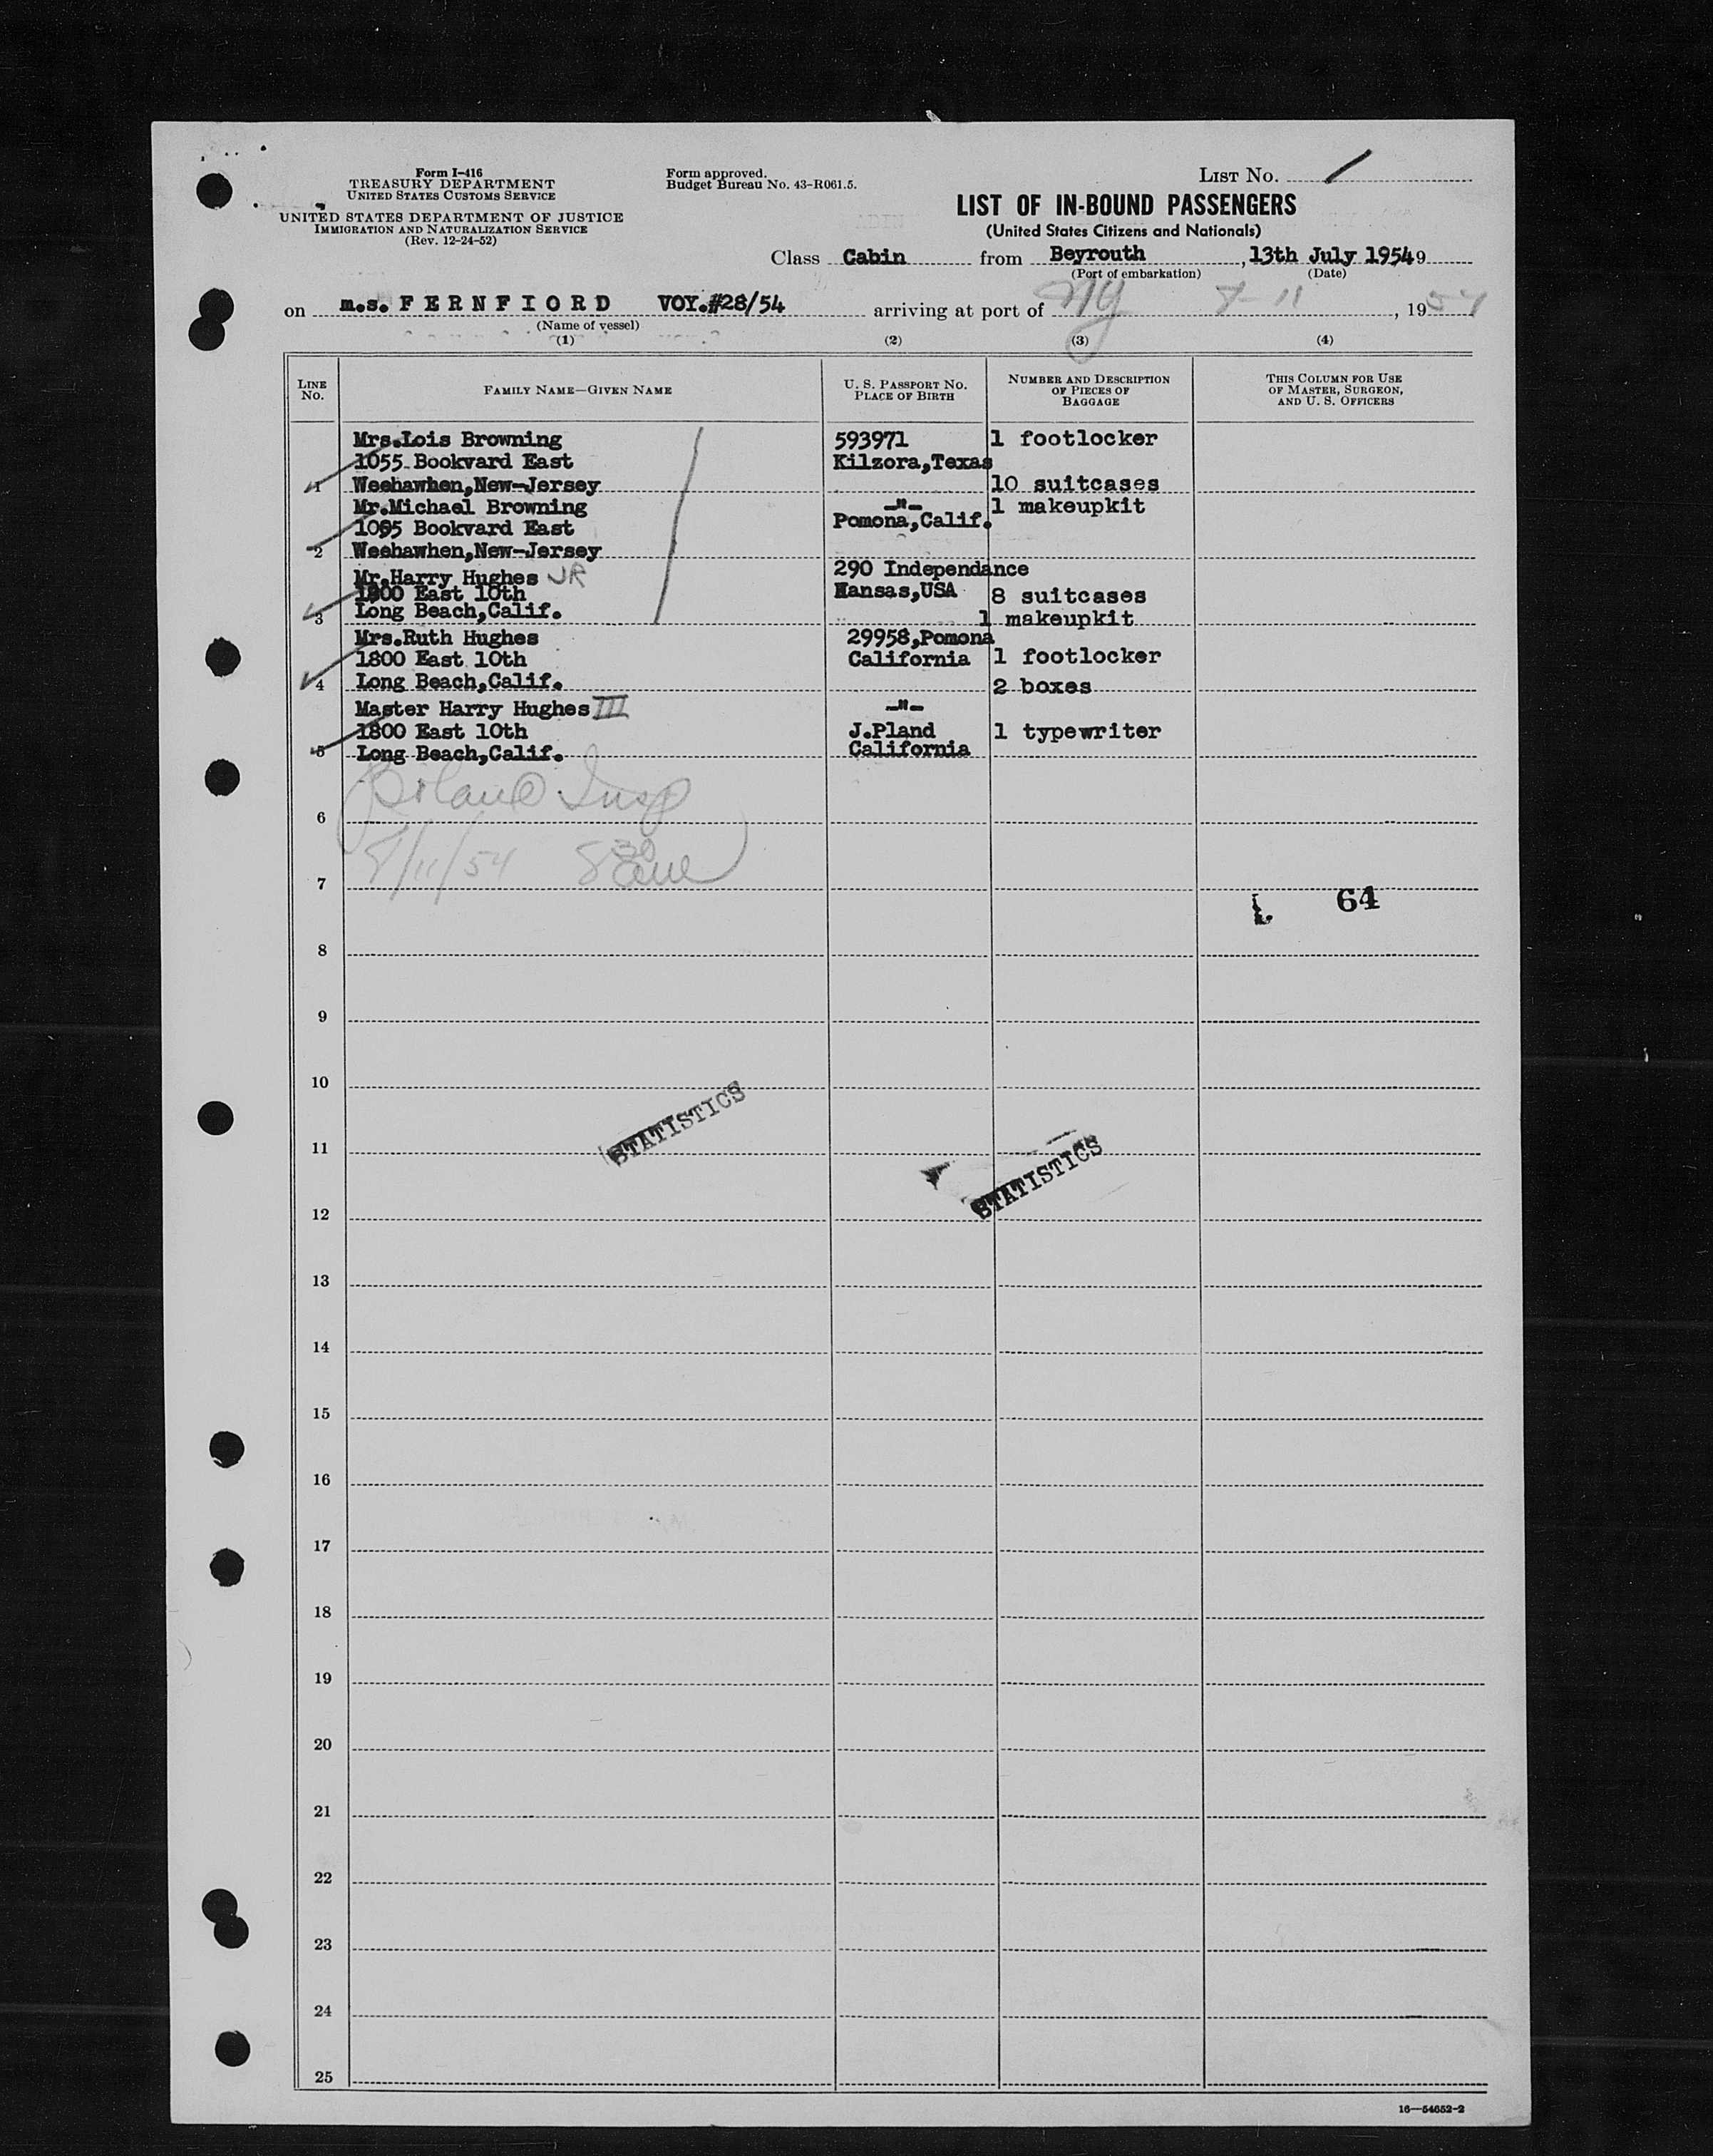 Form I-416
TREASURY DEPARTMENT
UNITED STATES CUSTOMS SERVICE
UNITED STATES DEPARTMENT OF JUSTICE
IMMIGRATION AND NATURALIZATION SERVICE
(Rev. 12-24-52)
Form approved.
Budget Bureau No. 43-R061.5.
LIST NO. /
LIST OF IN-BOUND PASSENGERS
(United States Citizens and Nationals)
Class Cabin from Beyrouth, 13th July 19549
(Port of embarkation) (Date)
on m.s. F E R N F I O R D VOY.#28/54 arriving at port of NY 8-11, 1954
(Name of vessel)
(1) (2) (3) (4)
LINE NO.
FAMILY NAME—GIVEN NAME
U. S. PASSPORT NO.
PLACE OF BIRTH
NUMBER AND DESCRIPTION
OF PIECES OF
BAGGAGE
THIS COLUMN FOR USE
OF MASTER, SURGEON,
AND U. S. OFFICERS
Mrs.Lois Browning 593971 1 footlocker
1055 Bookvard East Kilzora,Texas
1 Weehawhen,New-Jersey 10 suitcases
Mr.Michael Browning -"- 1 makeupkit
1095 Bookvard East Pomona,Calif.
2 Weehawhen,New-Jersey
Mr.Harry Hughes JR 290 Independance
1800 East 10th Kansas,USA 8 suitcases
3 Long Beach,Calif. 1 makeupkit
Mrs.Ruth Hughes 29958,Pomona
1800 East 10th California 1 footlocker
4 Long Beach,Calif. 2 boxes
Master Harry Hughes III -"-
1800 East 10th J.Pland 1 typewriter
5 Long Beach,Calif. California
Insp
6
8/11/54 8 30
7
64
8
9
10
STATISTICS
11
STATISTICS
12
13
14
15
16
17
18
19
20
21
22
23
24
25
16—54652-2